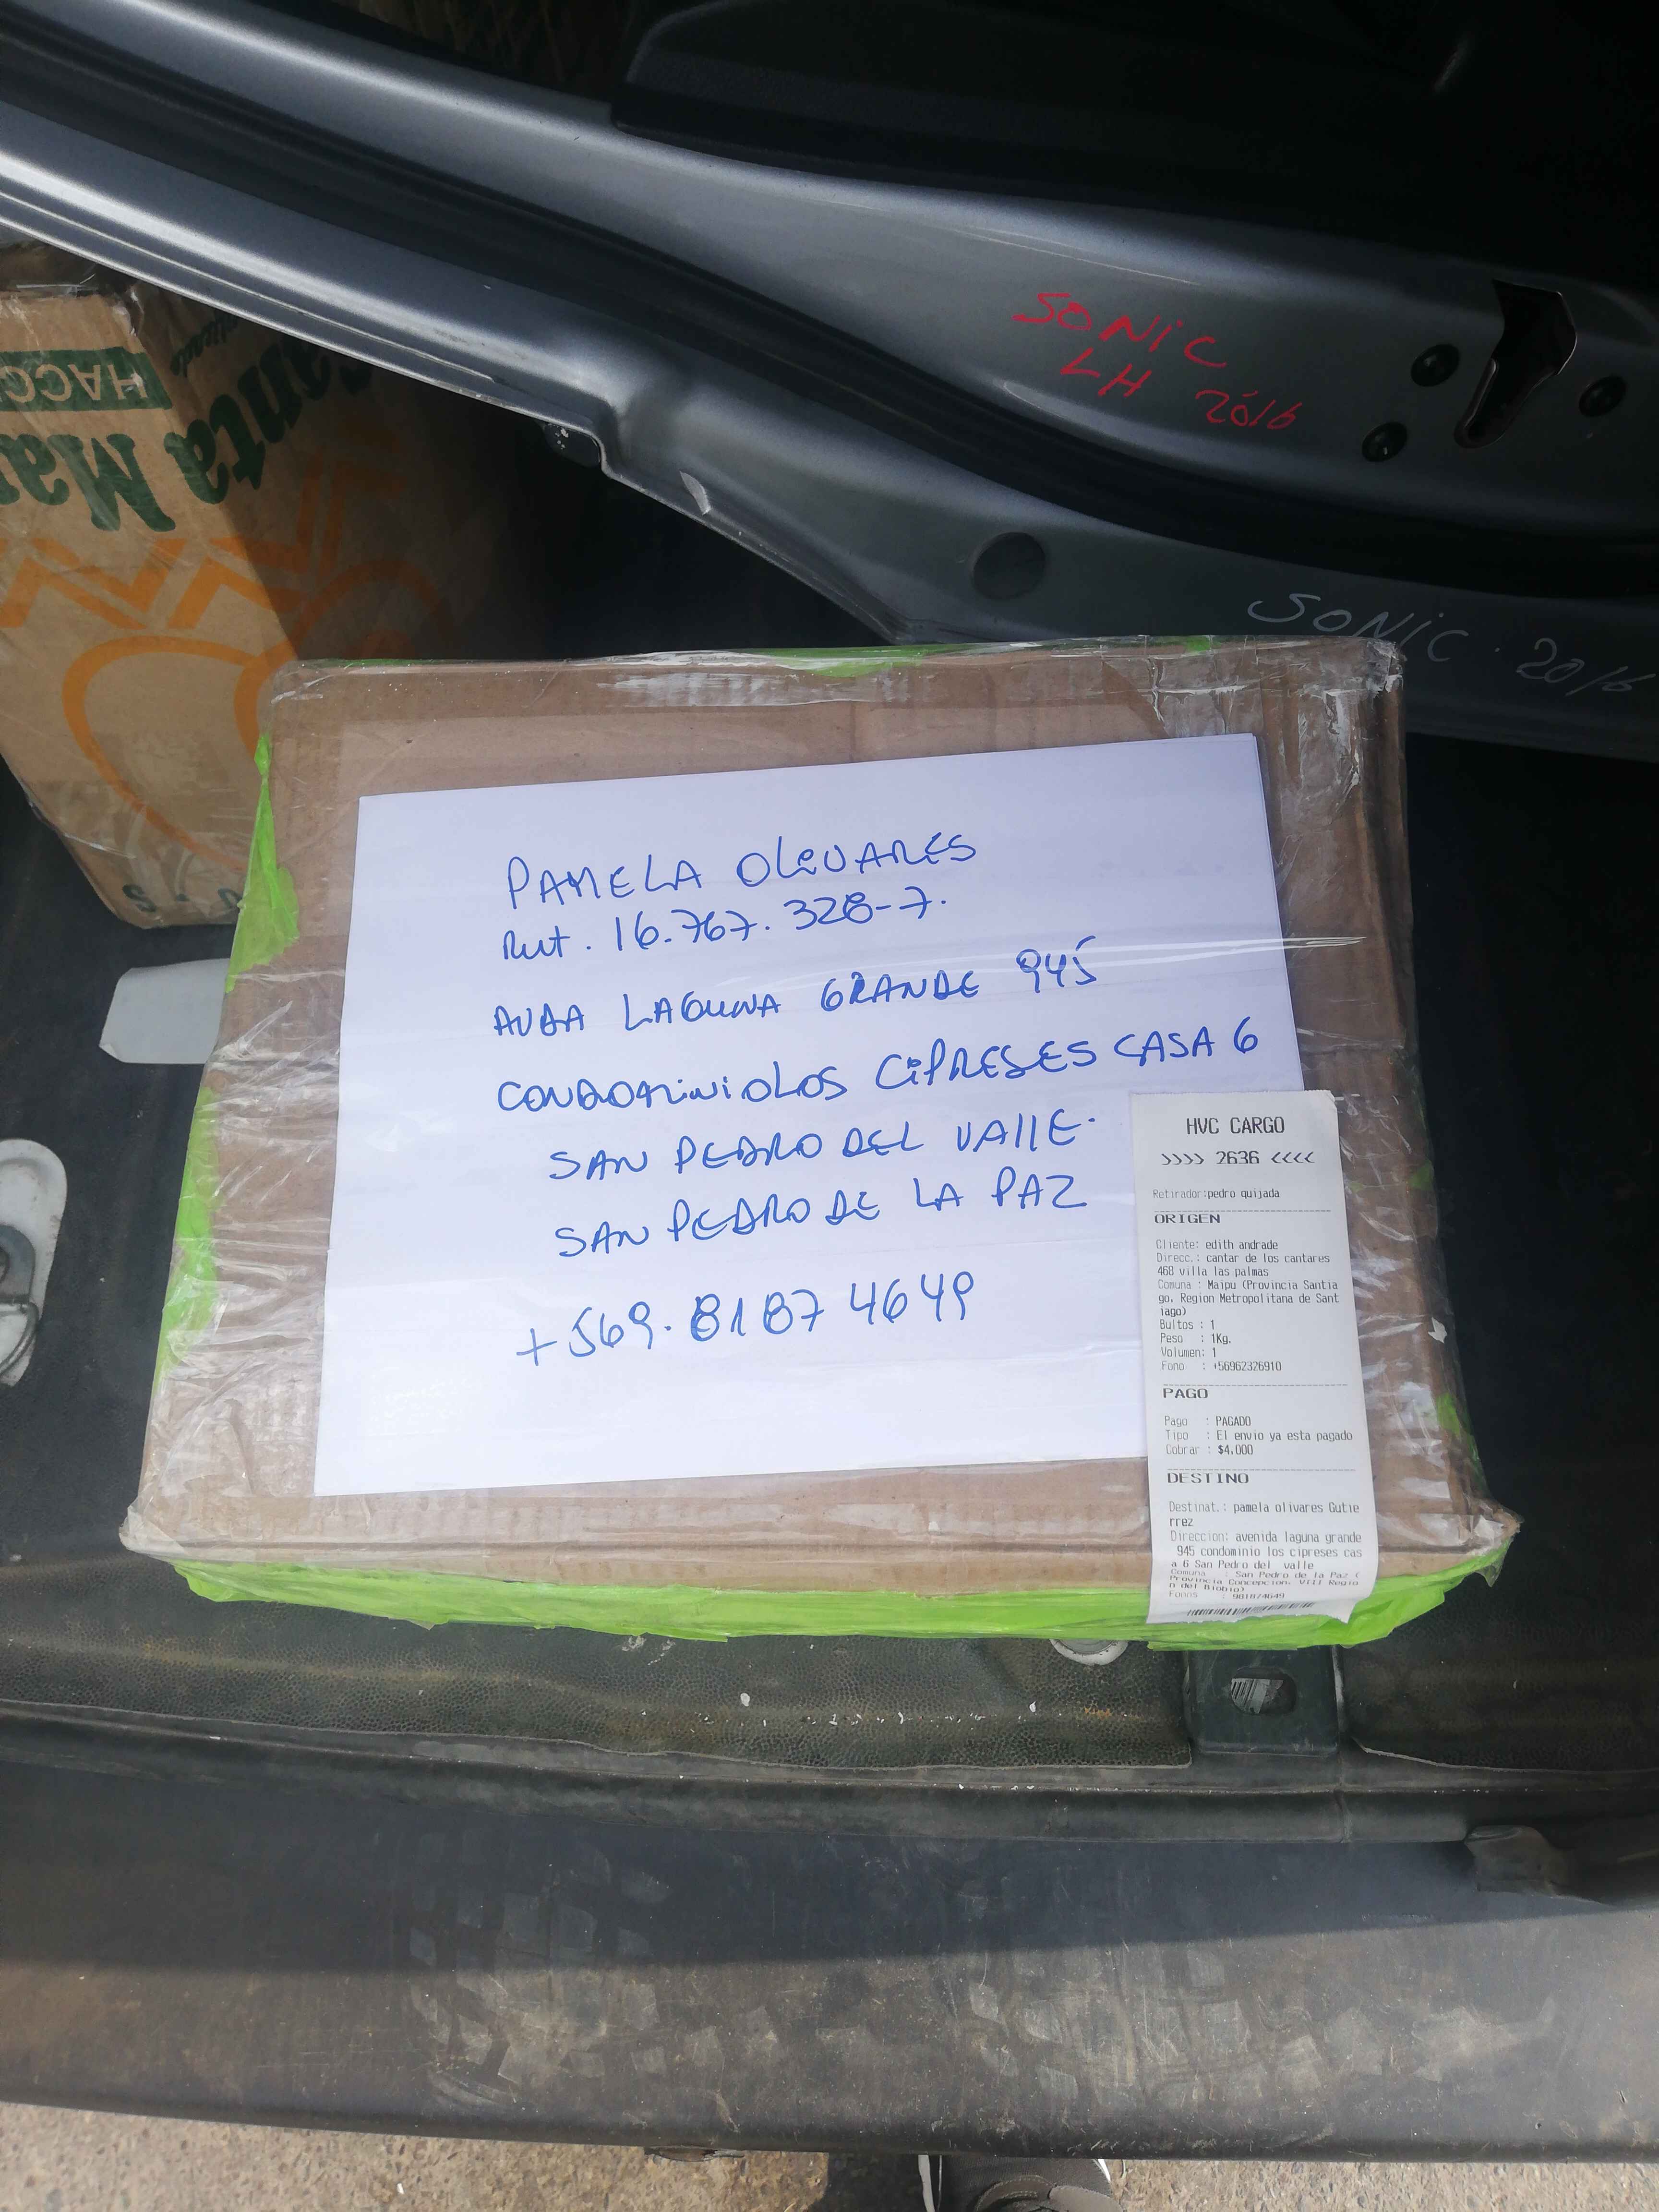 SONIC
LH 2016
SONIC. 2016
HACC
Santa
Mar
PAMELA OLIVARES
Rut. 16.767.328-7.
AVDA LAGUNA GRANDE 945
CONDOMINIO LOS CIPRESES CASA 6
SAN PEDRO DEL VALLE.
SAN PEDRO DE LA PAZ
+569.81874649
HVC CARGO
>>>> 2636 <<<<
Retirador:pedro quijada
ORIGEN
Cliente: edith andrade
Direcc.: cantar de los cantares
468 villa las palmas
Comuna : Maipu (Provincia Santia
go, Region Metropolitana de Sant
iago)
Bultos : 1
Peso : 1Kg.
Volumen: 1
Fono : +56962326910
PAGO
Pago : PAGADO
Tipo : El envio ya esta pagado
Cobrar : $4.000
DESTINO
Destinat.: pamela olivares Gutie
rrez
Direccion: avenida laguna grande
945 condominio los cipreses cas
a 6 San Pedro del valle
Comuna : San Pedro de la Paz (
Provincia Concepcion, VIII Regio
n del Biobio)
Fonos : 981874649